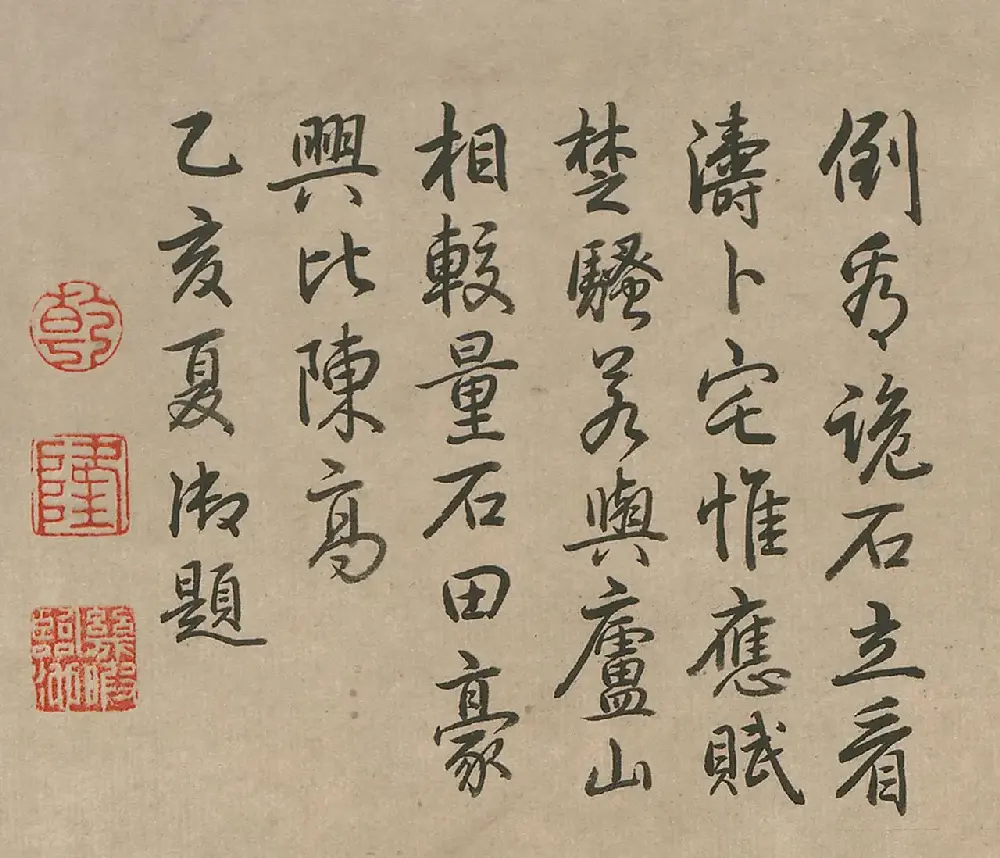 倒喬詭石立看
濤卜宅惟應賦
楚騷若與廬山
相較量石田豪
興比陳高
乙亥夏御題
乾
隆
幾暇臨池